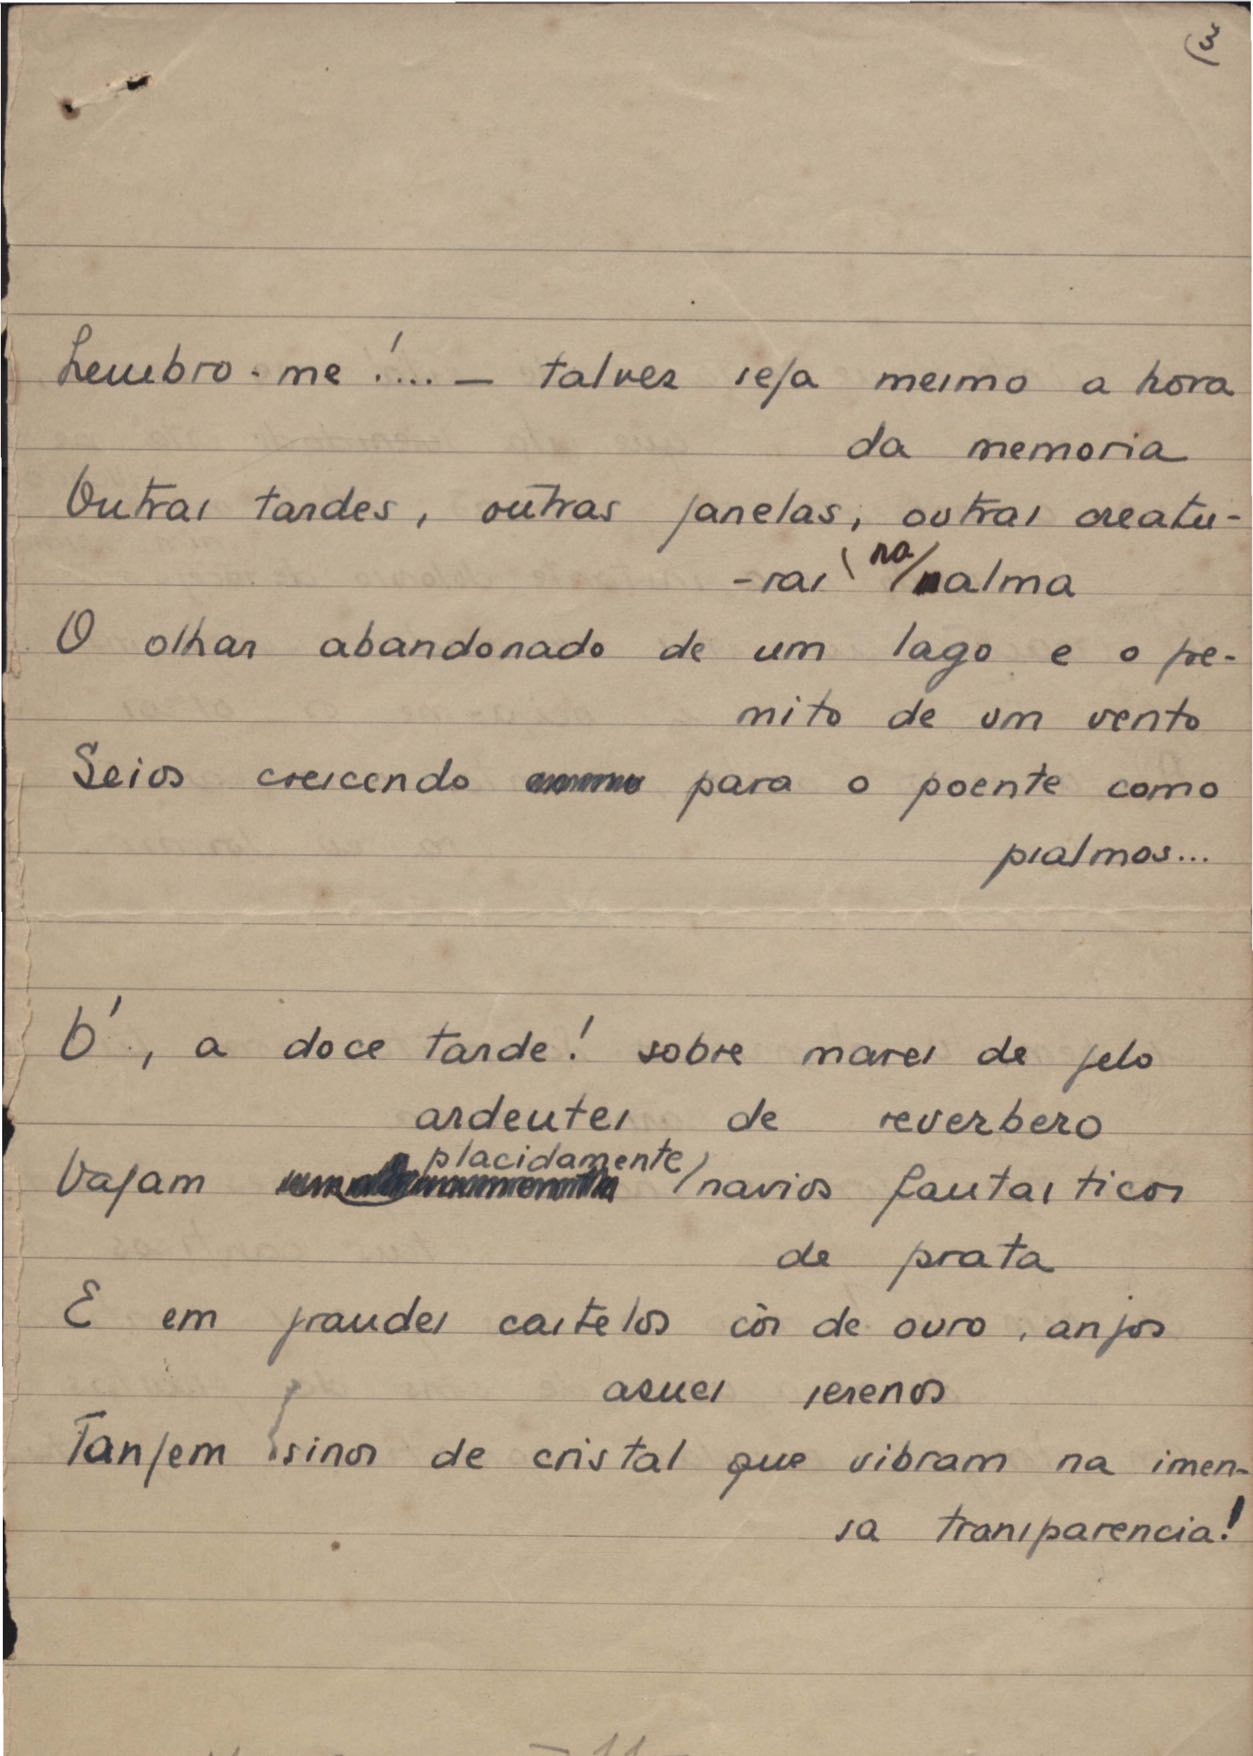 3
Lembro-me!... — talvez seja mesmo a hora
da memoria
Outras tardes, outras janelas, outras creatu-
-ras na alma
O olhar abandonado de um lago e o fre-
mito de um vento
Seios crescendo para o poente como
psalmos...
Ó, a doce tarde! sobre mares de gelo
ardentes de reverbero
placidamente
Vagam navios fantasticos
de prata
E em grandes castelos côr de ouro, anjos
azues serenos
Tanjem sinos de cristal que vibram na imen-
sa transparencia!